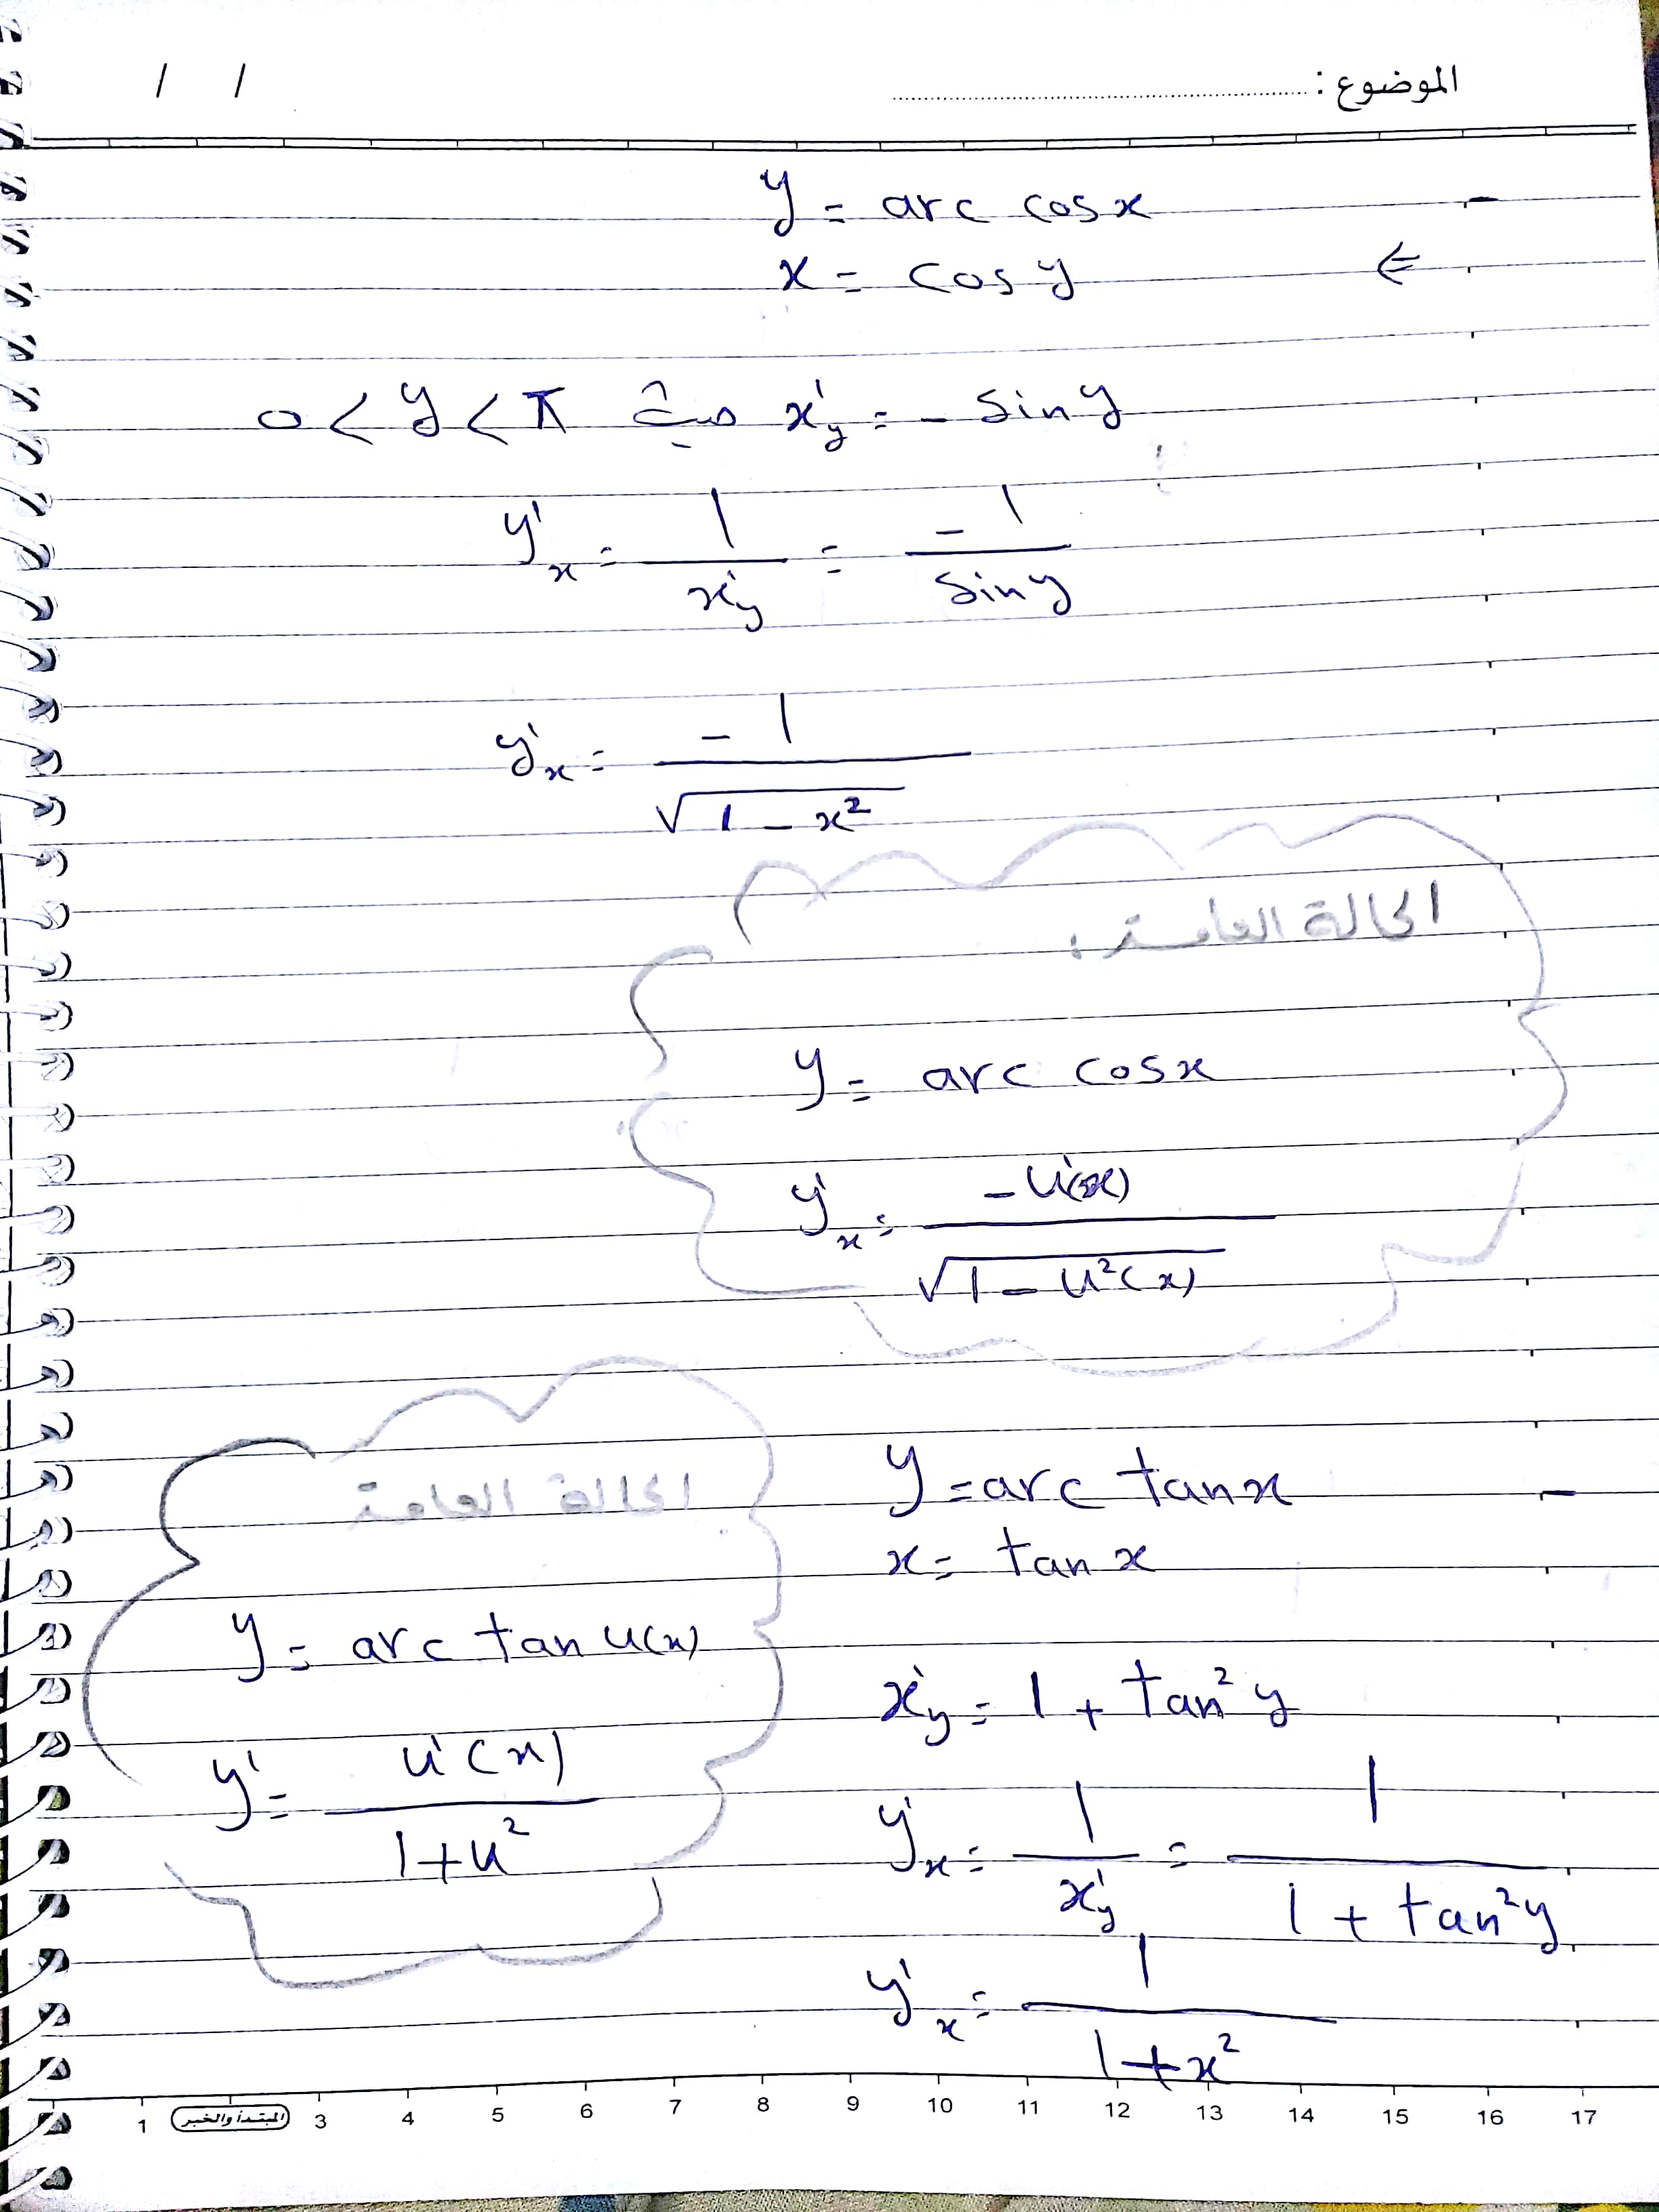 الموضوع : / /
- y = arc cos x
⇐ x = cos y
x'y = - sin y حيث 0 < y < π
y'x = 1 / x'y = -1 / sin y
y'x = -1 / √(1 - x²)
الحالة العامة :
y = arc cos x
y'x = -u'(x) / √(1 - u²(x))
- y = arc tan x
x = tan x
x'y = 1 + tan² y
y'x = 1 / x'y = 1 / (1 + tan² y)
y'x = 1 / (1 + x²)
الحالة العامة
y = arc tan u(x)
y' = u'(x) / (1 + u²)
1 المبتدأ والخبر 3 4 5 6 7 8 9 10 11 12 13 14 15 16 17